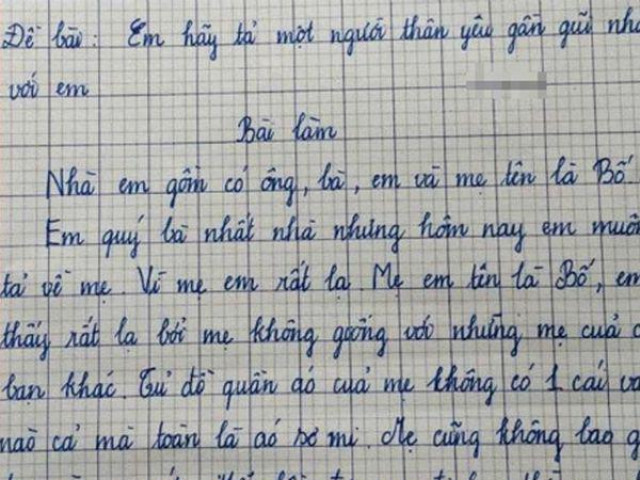 Đề bài: Em hãy tả một người thân yêu gần gũi
với em
Bài làm
Nhà em gồm có ông, bà, em và mẹ tên là Bố
Em quý bà nhất nhà nhưng hôm nay em muốn
tả về mẹ. Vì mẹ em rất lạ. Mẹ em tên là Bố, em
thấy rất lạ bởi mẹ không giống với những mẹ của
bạn khác. Tủ đồ quần áo của mẹ không có 1 cái
nào cả mà toàn là áo sơ mi. Mẹ cũng không bao